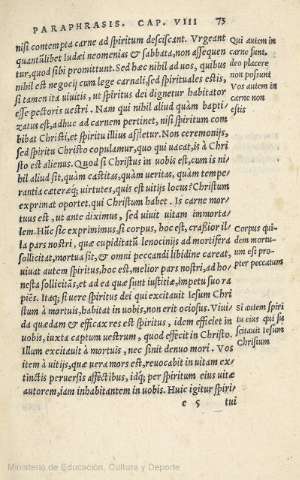 PARAPHRASIS. CAP. VIII 75
nisi contempta carne ad spiritum desciscant. Vrgeant
quantũlibet Iudæi neomenias & sabbata, non assequen
tur, quod sibi promittunt. Sed hæc nihil ad uos, quibus
nihil est negocij cum lege carnali, sed spirituales estis,
si tamen ita uiuitis, ut spiritus dei dignetur habitator
esse pectoris uestri. Nam qui nihil aliud quàm bapti-
zatus est, adhuc ad carnem pertinet, nisi spiritum com
bibat Christi, et spiritu illius affletur. Non ceremonijs,
sed spiritu Christo copulamur, quo qui uacat, is à Chri
sto est alienus. Quod si Christus in uobis est, cum is ni-
hil aliud sit, quàm castitas, quàm ueritas, quàm tempe-
rantia cæteræq; uirtutes, quis est uitijs locus? Christum
exprimat oportet, qui Christum habet. Is carne mor-
tuus est, ut ante diximus, sed uiuit uitam immorta
lem. Hũc sic exprimimus, si corpus, hoc est, crassior il-
la pars nostri, quæ cupiditatũ lenocinijs ad mortifera
sollicitat, mortua sit, & omni peccandi libidine careat,
uiuat autem spiritus, hoc est, melior pars nostri, ad ho-
nesta sollicitãs, et ad ea quæ sunt iustitiæ, impetu suo ra
piẽs. Itaq; si uere spiritus dei qui excitauit Iesum Chri
stum à mortuis, habitat in uobis, non erit ociosus. Viui-
da quædam & efficax res est spiritus, idem efficiet in
uobis, iuxta captum uestrum, quod effecit in Christo.
Illum excitauit à mortuis, nec sinit denuo mori. Vos
item à uitijs, quæ uera mors est, reuocabit in uitam ex-
tinctis peruersis affectibus, idq; per spiritum eius uitæ
autorem, iam inhabitantem in uobis. Huic igitur spiri-
e 5 tui
Qui autem in
carne sunt,
deo placere
non possunt
Vos autem in
carne non
estis
Corpus qui-
dem mortu-
um est pro-
pter peccatum
Si autem spiri
tus eius qui su
scitauit Iesum
Christum
Ministerio de Educación, Cultura y Deporte